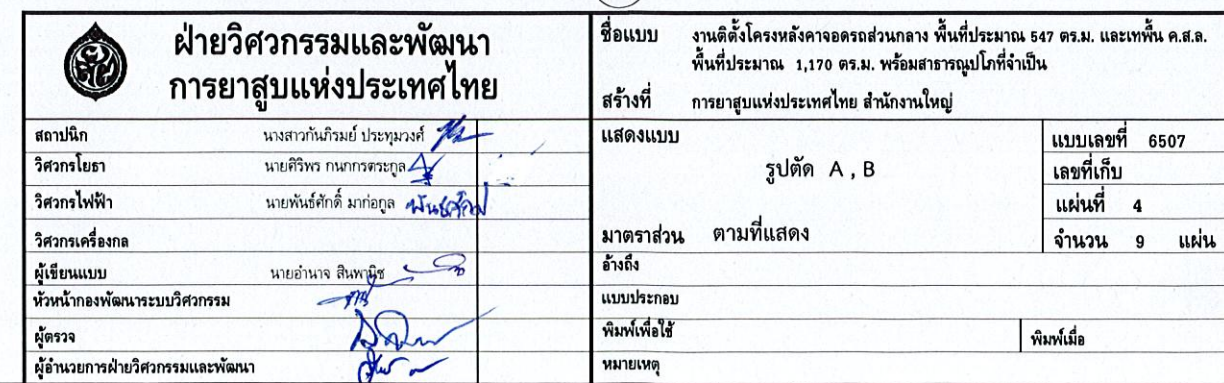 ฝ่ายวิศวกรรมและพัฒนา
การยาสูบแห่งประเทศไทย
สถาปนิก นางสาวกันภิรมย์ ประทุมวงศ์
วิศวกรโยธา นายศิริพร กนกกรตระกูล
วิศวกรไฟฟ้า นายพันธ์ศักดิ์ มาก่อกูล พันธ์ศักดิ์
วิศวกรเครื่องกล
ผู้เขียนแบบ นายอำนาจ สินพานิช
หัวหน้ากองพัฒนาระบบวิศวกรรม
ผู้ตรวจ
ผู้อำนวยการฝ่ายวิศวกรรมและพัฒนา
ชื่อแบบ งานติดตั้งโครงหลังคาจอดรถส่วนกลาง พื้นที่ประมาณ 547 ตร.ม. และเทพื้น ค.ส.ล.
พื้นที่ประมาณ 1,170 ตร.ม. พร้อมสาธารณูปโภที่จำเป็น
สร้างที่ การยาสูบแห่งประเทศไทย สำนักงานใหญ่
แสดงแบบ แบบเลขที่ 6507
รูปตัด A , B เลขที่เก็บ
แผ่นที่ 4
มาตราส่วน ตามที่แสดง จำนวน 9 แผ่น
อ้างถึง
แบบประกอบ
พิมพ์เพื่อใช้ พิมพ์เมื่อ
หมายเหตุ